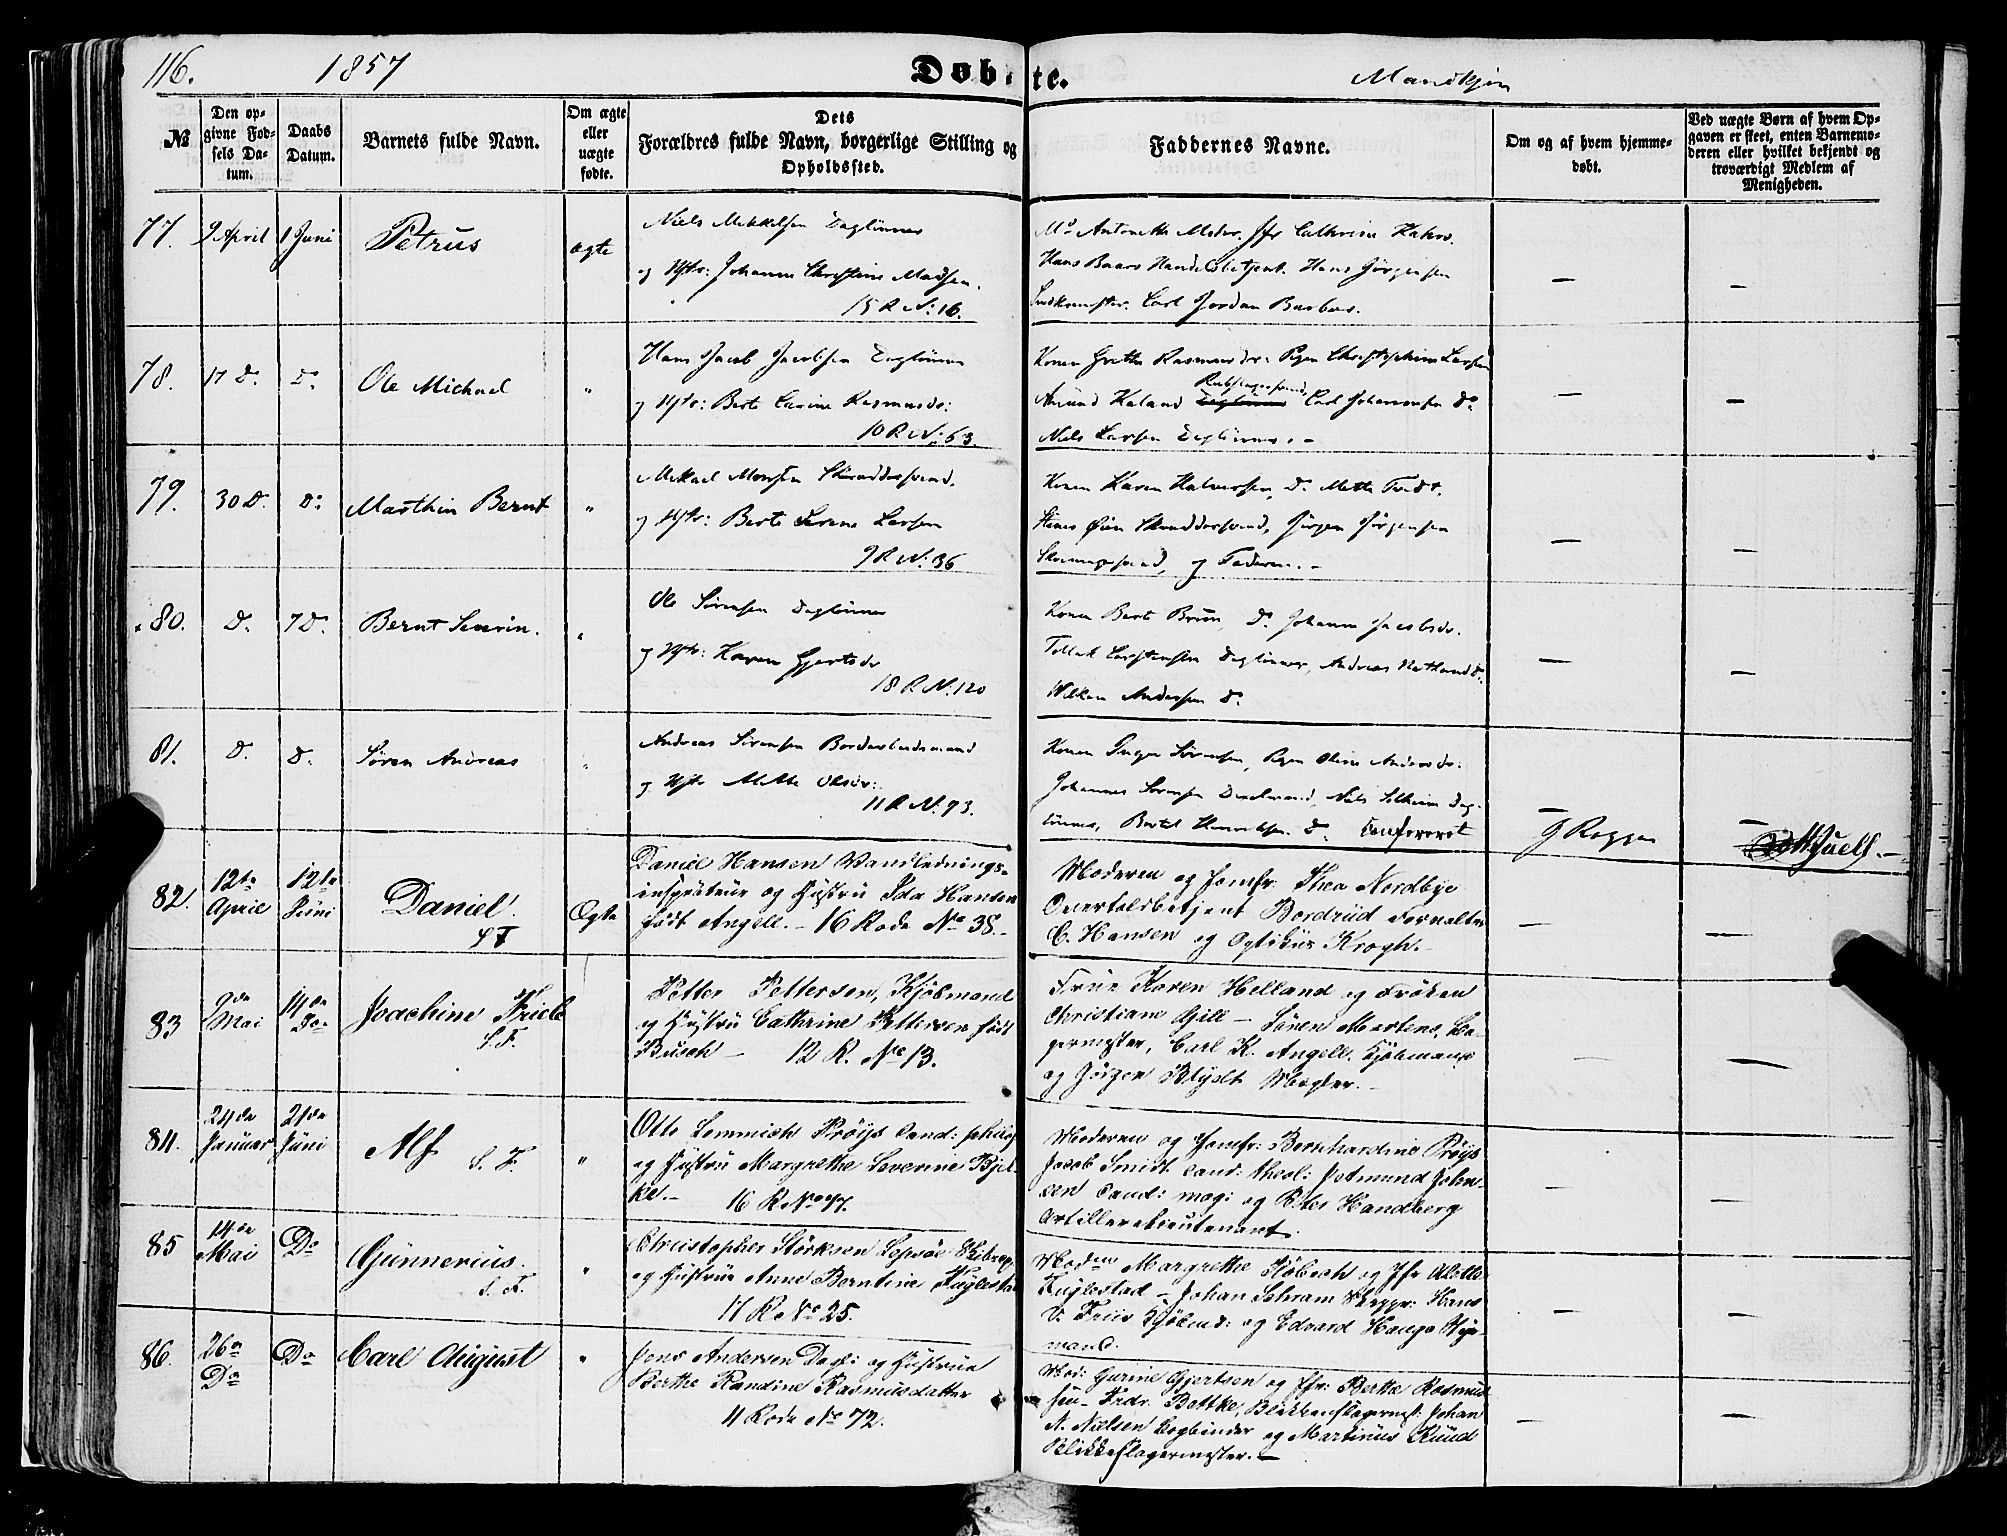 116. 1857 Døbte. Mandkjøn
№
Den opgivne Fødsels Datum.
Daabs Datum.
Barnets fulde Navn.
Om ægte eller uægte fødte.
Dets Forældres fulde Navn, borgerlige Stilling og Opholdssted.
Faddernes Navne.
Om og af hvem hjemmedøbt.
Ved uægte Børn af hvem Opgaven er skeet, enten Barnemoderen eller hvilket bekjendt og troværdigt Medlem af Menigheden.
77. 9 April 1 Juni Petrus ægte
Niels Mikkelsen Daglønner
og Hstr: Johanne Christine Madsen.
15 R N: 16.
Antonette
Hans Baars Handelsbetjent. Hans Jörgensen
Carl Jordan Barber.
—
—
78. 17 D. Do Ole Michael "
Hans Jacob Jacobsen Daglønner
og Hstr: Berte Karine Rasmusdr:
10 R N: 63.
Konen Grethe Rasmusdr: Pigen Larsen
Amund Haland Carl Johannesen Do
Niels Larsen Daglønner. -
—
—
79. 30 D. Do Marthin Bernt "
Mikael Monsen Skræddersvend,
og Hstr: Berte Serine Larsen
9 R N: 36
Konen Karen Halversen, Do Mette Tvedt.
Skræddersvend, Jörgen Jörgensen
og Faderen. -
—
—
80. D. 7 D. Bernt Severin. "
Ole Sørensen Daglønner
og Hstr: Karen Gjertsdr
18 R N. 120
Konen Berte Brun, Do Johanne Jacobsdr.
Tollak Carstensen Dagløner, Andreas Natland Do.
Willum Andersen Do
—
—
81. D. D. Søren Andreas "
Andreas Sörensen
og Hstr Mette Olsdr:
11 R N. 93.
Konen Inger Sørensen, Pigen Oline Andersdr:
Johannes Sørensen Niels Solheim Dag-
lönner, Bertel Do Confereret
—
—
82. 12te April 12te Juni Daniel. S F Ægte
Daniel Hansen Vandlednings-
inspecteur og Hustru Ida Hansen
født Angell. - 16 Rode No 38. -
Moderen og Jomfr. Thea Nordbye
Overtoldbetjent Bordrüd Forvalter
C. Hansen og Optikus Krogh. -
—
—
83 9de Mai 14de Do Joachim Friele S. F.
Petter Pettersen, Kjöbmand
og Hustru Cathrine Pettersen født
Busch — 12 R. No 13.
Frue Karen Helland og Frøken
Christiane Gill — Sören Martens, La-
germester, Carl K. Angell. Kjöbmand
og Jörgen Blydt Mægler. -
—
84. 24de Januar 21de Juni Alf S. F. "
Otto Lemmich Pröys Cand: philos
og Hustru Margrethe Severine Bjel-
ke. - 16 R No
Moderen og Jomfr: Bernhardine Pröys
Jacob Smidt cand: theol: Ostmund John-
sen cand: mag: og Peter Handberg
Artillerelieutenant.
—
—
85 14de Mai Do Gunnerius. S. F. "
Christopher Störksen Skibcap.
og Hustrue Anne Berntine Fuglestad
17 R No 25.
Moderen Margrethe og Jfr
Fuglestad - Johan Schram Skipper. Hans
V. Friis Kjöbmd: og Edvard Hauge Styr-
mand.
—
—
86. 26de Do Do Carl August "
Jens Andersen Dagl: og Hustrue
Berthe Randine Rasmusdatter
11 Rode No 72.
Mod: Gurine Gjertsen og Jfr: Berthe Rasmus
sen - Frdr. Bottke, Blikkenslagermest: Johan
N. Nielsen Bogbinder og Martinus Knud
Blikkeslagermester. -
—
—